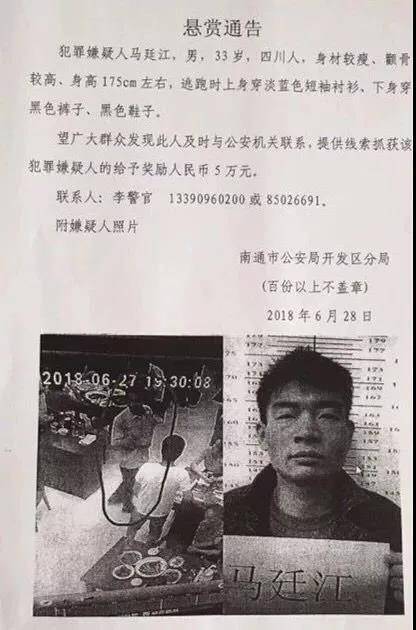 悬赏通告
犯罪嫌疑人马廷江，男，33岁，四川人，身材较瘦、颧骨
较高、身高175cm左右，逃跑时上身穿淡蓝色短袖衬衫、下身穿
黑色裤子、黑色鞋子。
望广大群众发现此人及时与公安机关联系，提供线索抓获该
犯罪嫌疑人的给予奖励人民币5万元。
联系人：李警官 13390960200或85026691。
附嫌疑人照片
南通市公安局开发区分局
(百份以上不盖章)
2018年6月28日
2018-06-27 19:30:08
马廷江